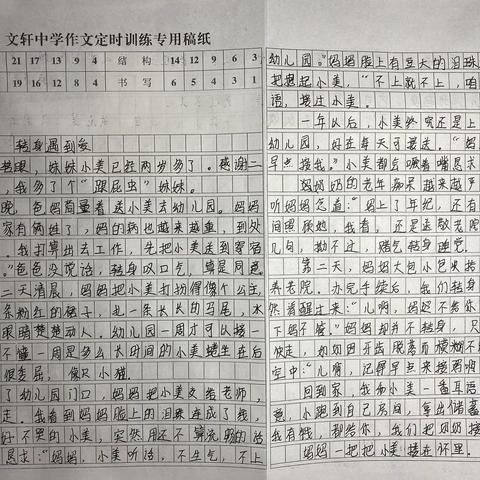 文轩中学作文定时训练专用稿纸
21 17 13 9 4 结构 14 12 9 6 3
19 16 12 8 4 书写 6 5 4 3 1
转身遇到爱
转眼，妹妹小美已经两岁多了。感谢二
，我多了个“跟屁虫”妹妹。
晚，爸妈商量着送小美去幼儿园。妈妈
家有俩娃了，妈的病也越来越重，到处
。我打算出去工作，先把小美送到寄宿
。”爸爸没说话，转身叹口气，算是同意
二天清晨，妈妈把小美打扮得像个公主，
条粉红的裙子，扎一条长长的马尾，水
眼睛楚楚动人。幼儿园一周才可以接一
不懂一周是多么长时间的小美蜷坐在后
很委屈，像只小猫。
了幼儿园门口，妈妈把小美交给老师，
走。我看到妈妈脸上的泪珠连成了线，
好不哭的小美，突然用还不算流畅的话
恳求：“妈妈，小美听话，不生气，不上
幼儿园。”妈妈脸上有豆大的泪珠
抱起小美，“不上就不上，咱
语，接过小美。
一年以后，小美终究还是上
幼儿园，好在每天可接送。“妈
早点接我。”小美都会噘着嘴恳求
妈妈奶的老年痴呆越来越严
听妈妈念道：“妈上了年纪，还有
间照顾她，我看，还是送敬老院
几句，拗不过，赌气转身睡觉。
第二天，妈妈大包小包来接
养老院。办完手续后，我们转身
然清醒过来：“儿啊，妈还不给你
下妈不管。”妈妈却并不转身，只
快走，奶奶因牙齿脱落而模糊不
空中：“儿啊，记得早点来接妈啊
回到家，我和小美一番耳语
竟，小跑到自己房间，拿出储蓄
我有钱，都给你，我们把奶奶接
妈妈一把把小美搂在怀里。